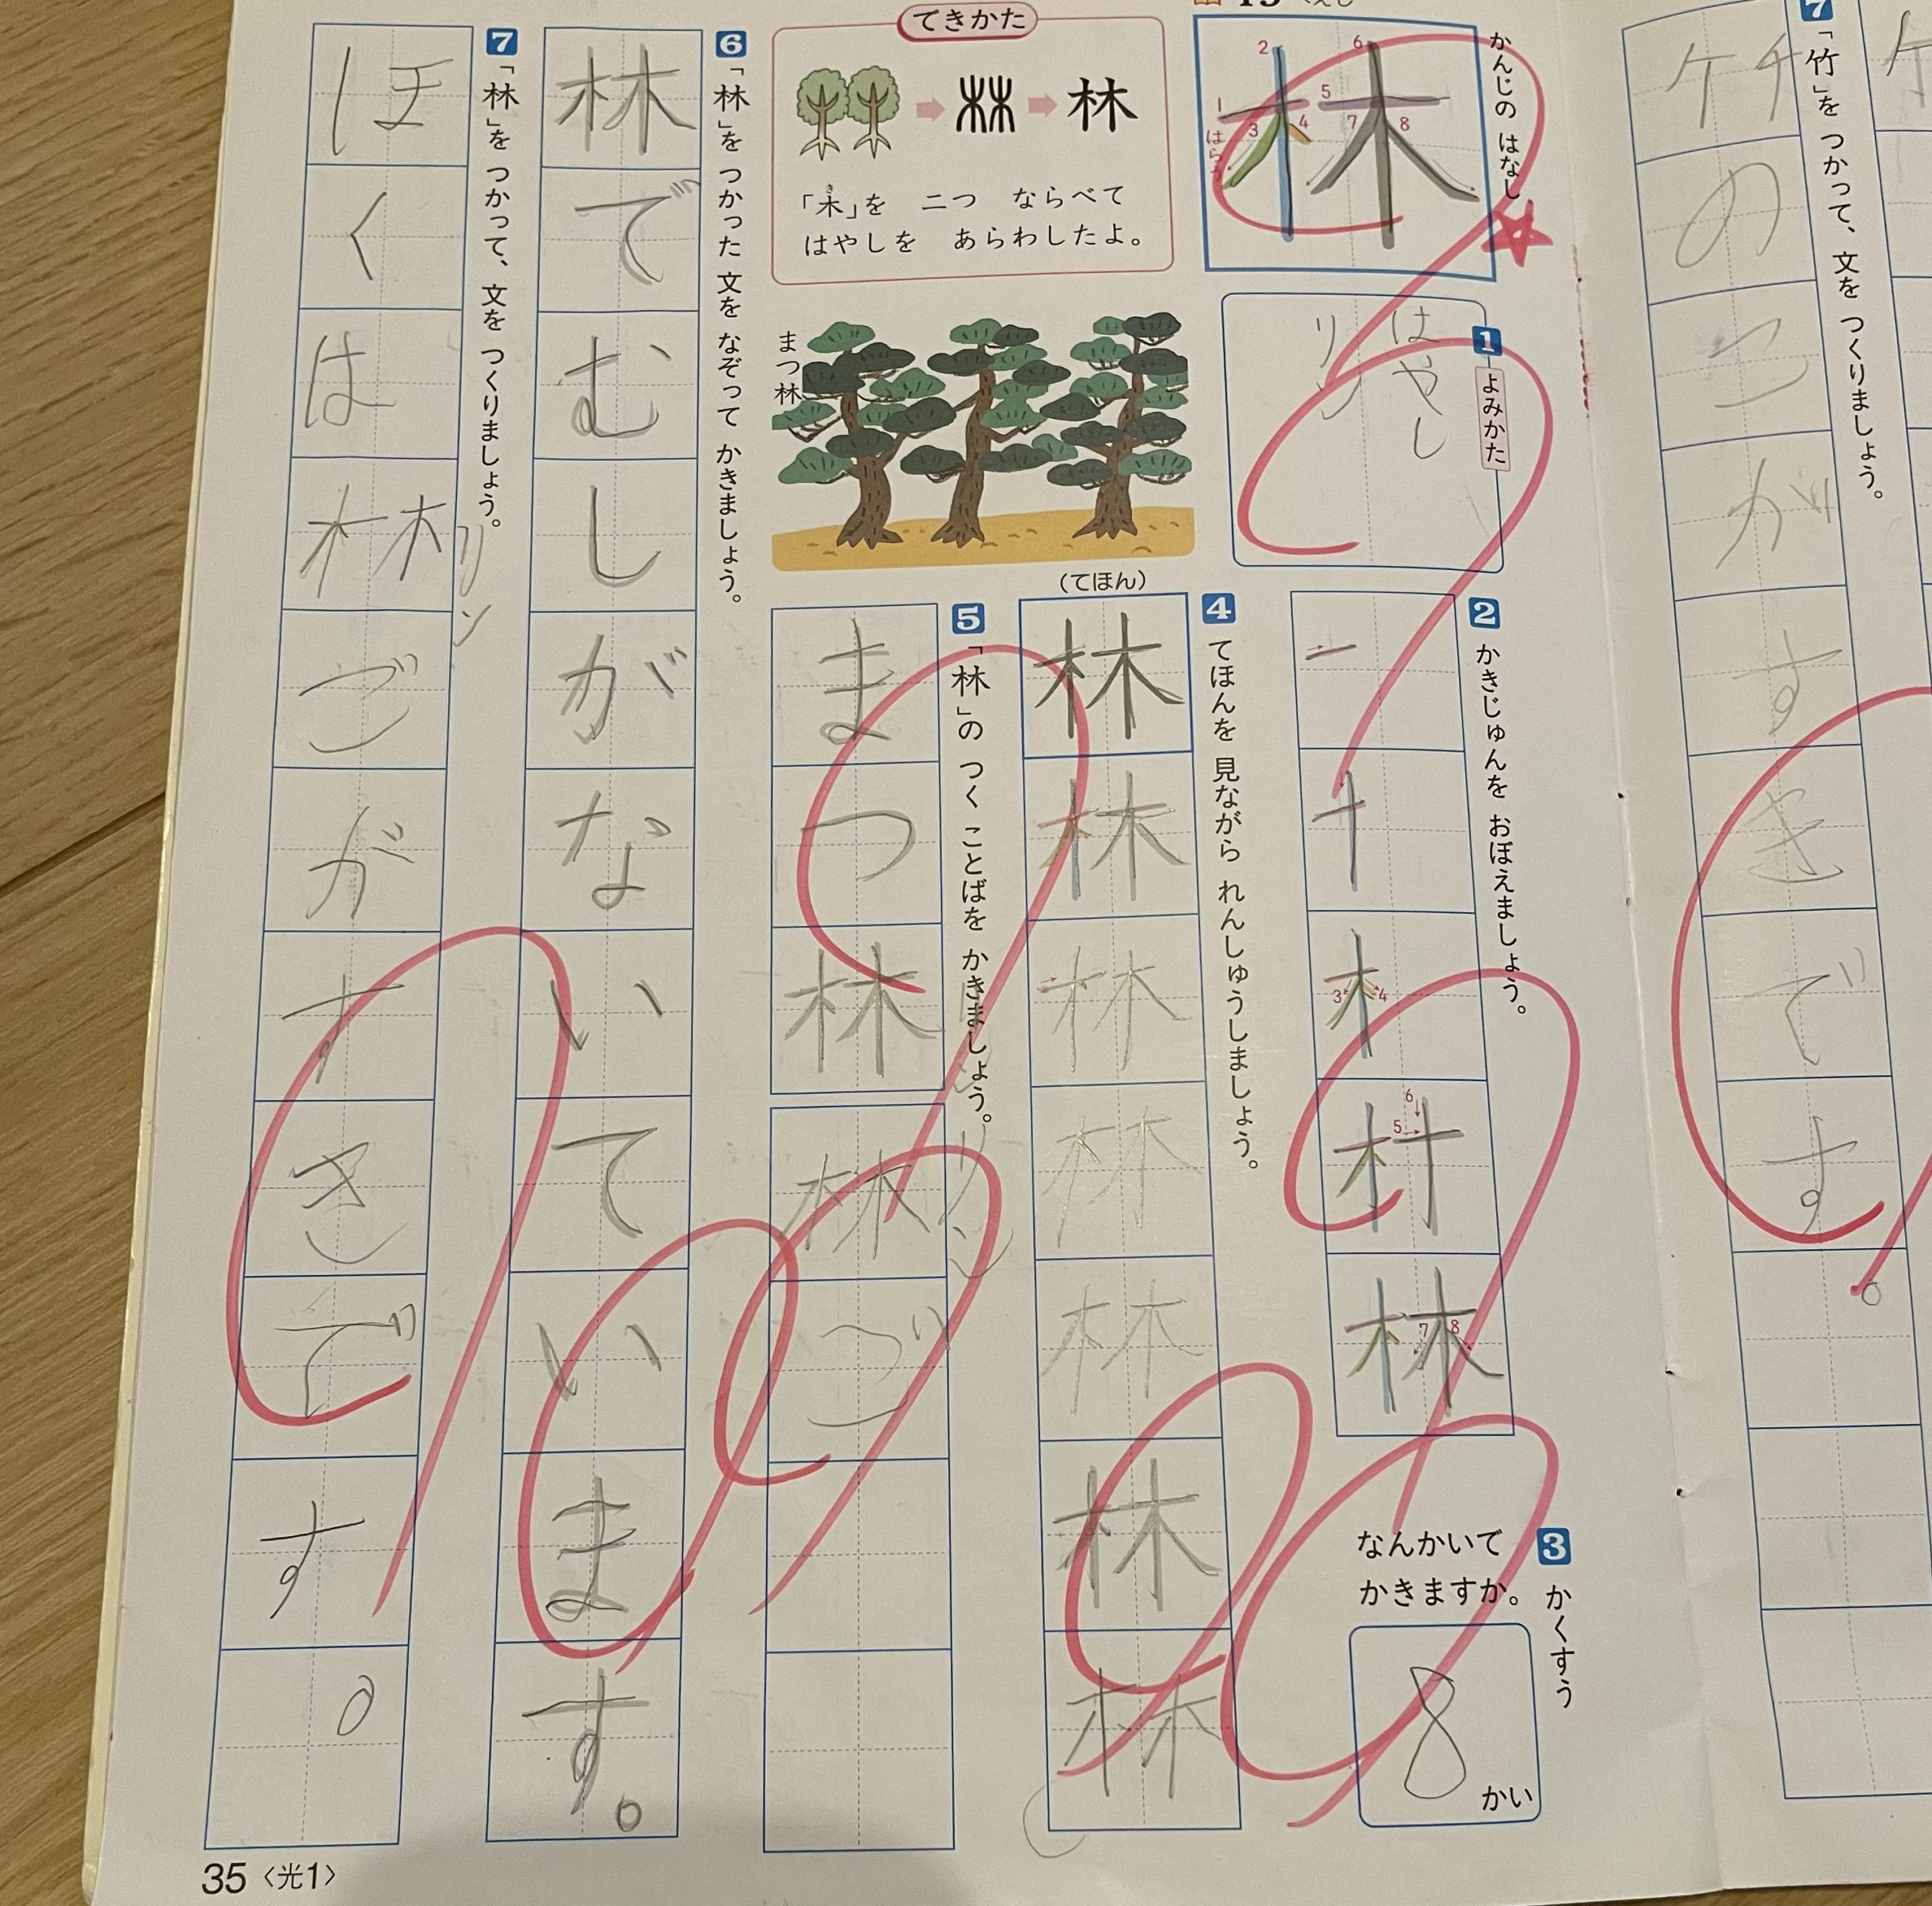 「竹」を つかって、文を つくりましょう。
竹のこがすきです。
かんじの はなし
林
1 2 3 4 5 6 7 8
はらう
できかた
林
「木」を 二つ ならべて
はやしを あらわしたよ。
き
1 よみかた
はやし
リン
まつ林
2 かきじゅんを おぼえましょう。
一 十 木 林
3 4 5 6 7 8
3 かくすう
なんかいで
かきますか。
8 かい
4 てほんを 見ながら れんしゅうしましょう。
(てほん)
林 林 林 林 林 林 林
5 「林」の つく ことばを かきましょう。
まつ林
林ご
リン
6 「林」を つかった 文を なぞって かきましょう。
林でむしがないています。
7 「林」を つかって、文を つくりましょう。
ぼくは林ごがすきです。
リン
35 〈光1〉